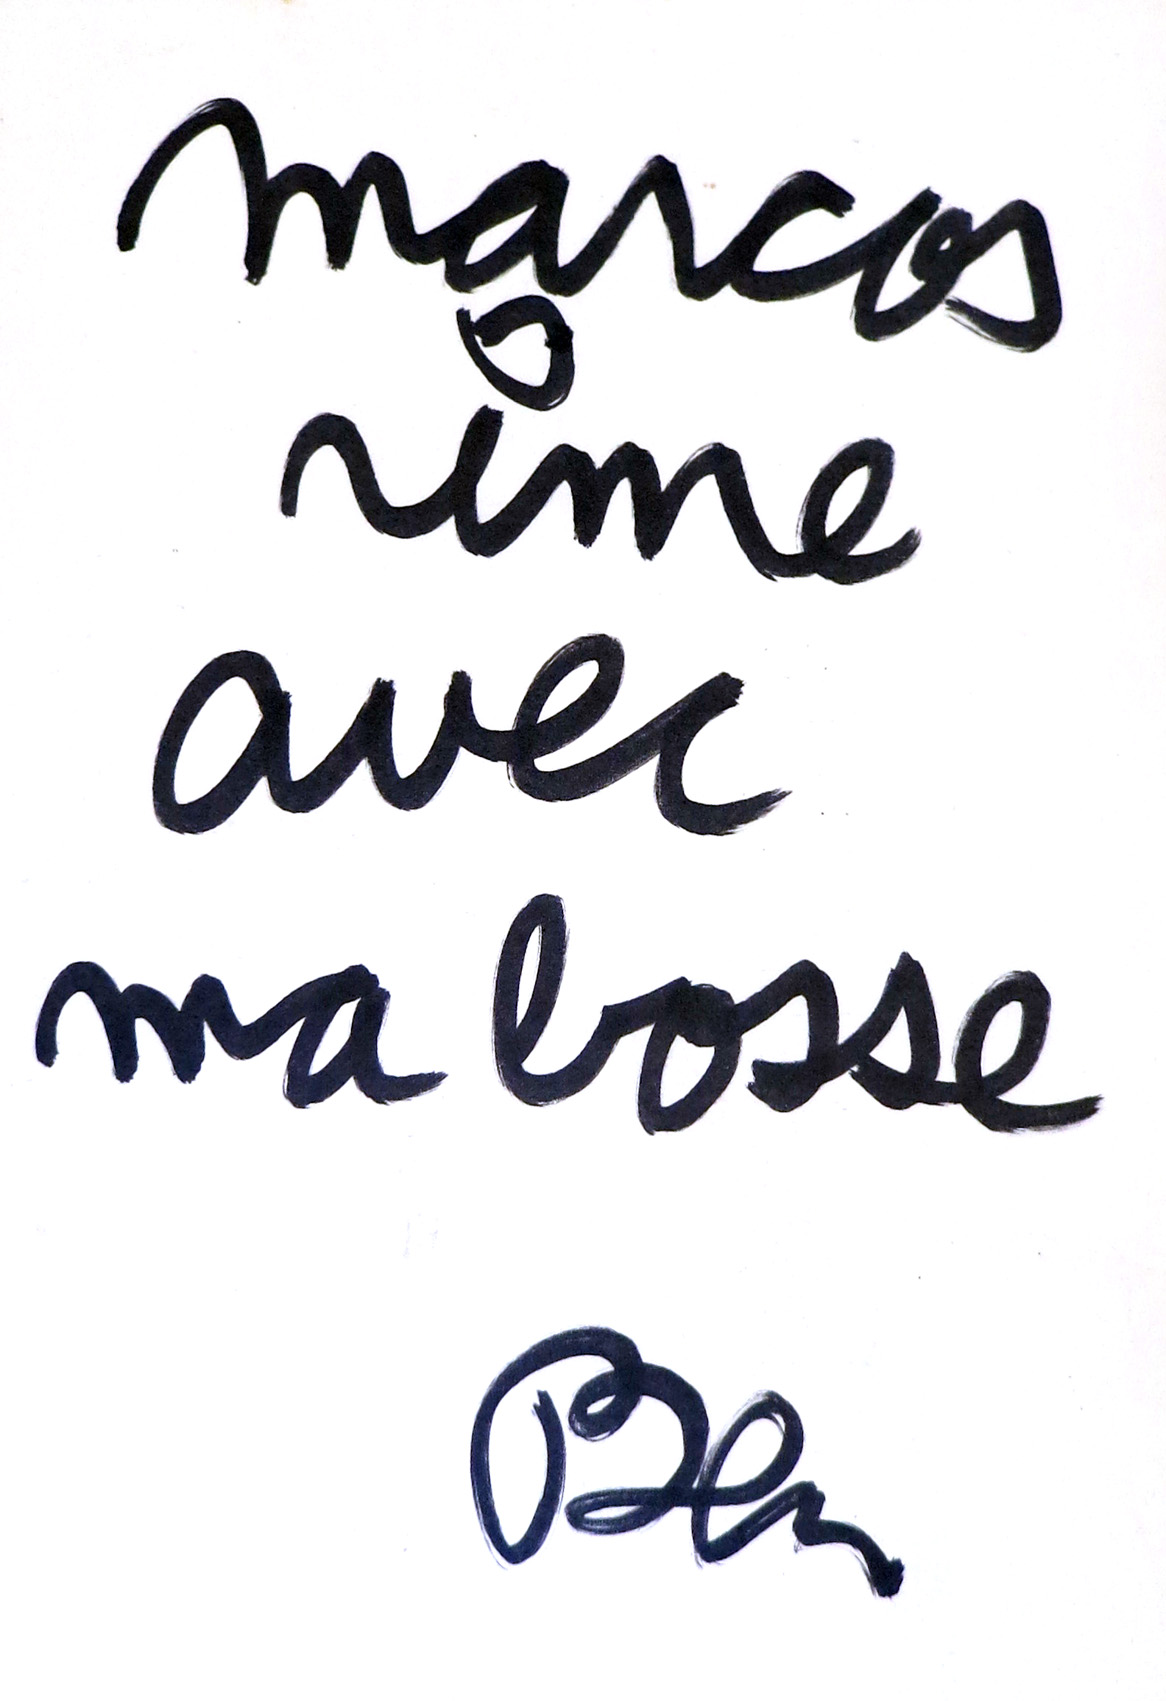 marcos
rime
avec
ma bosse
Ben